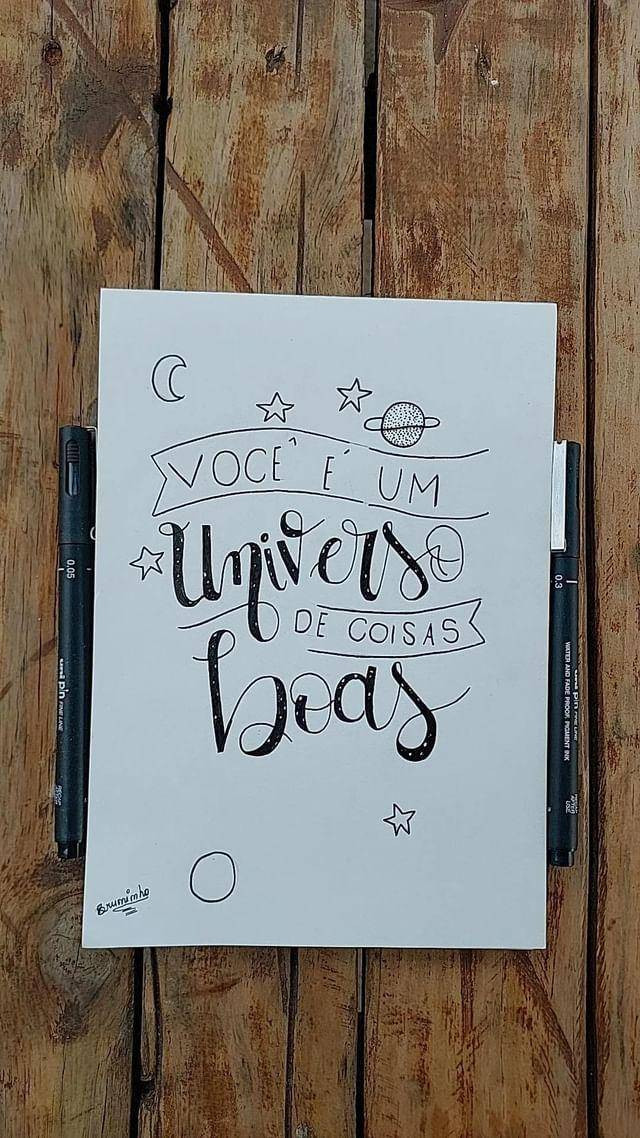 VOCÊ É UM
universo
DE COISAS
boas
Bruminho
0.05
uni pin
FINE LINE
0.3
WATER AND FADE PROOF, PIGMENT INK
uni pin
FINE LINE